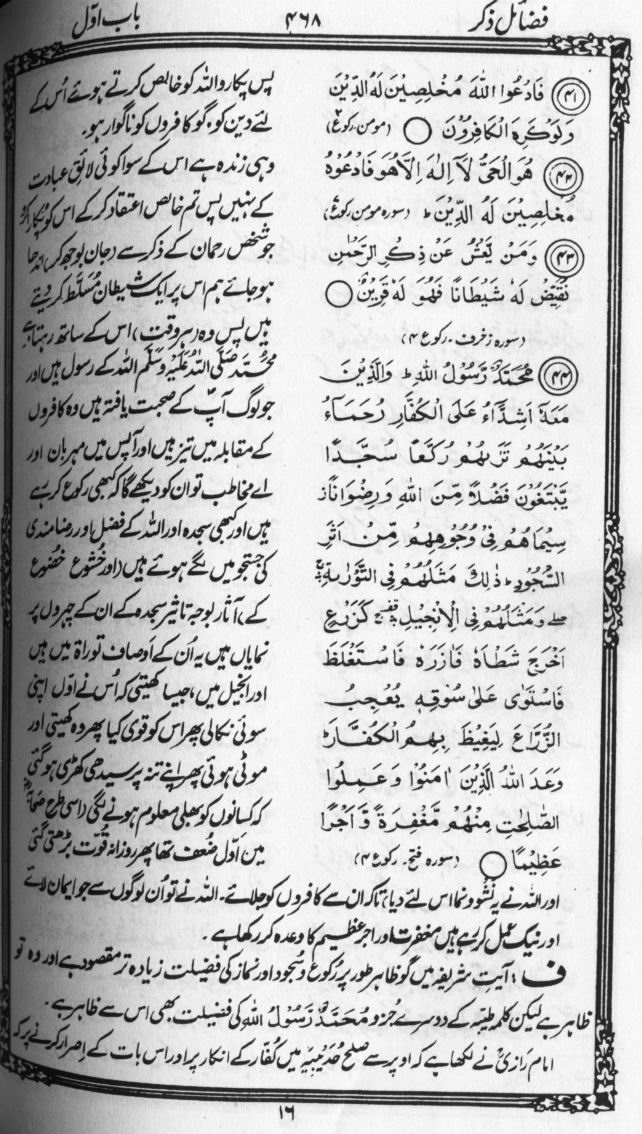 فضائل ذکر
۴۶۸
باب اوّل
(۴۱) فَادْعُوا اللّٰهَ مُخْلِصِيْنَ لَهُ الدِّيْنَ
وَلَوْ كَرِهَ الْكَافِرُوْنَ ○ (مومن، رکوع ۲)
(۴۲) هُوَ الْحَيُّ لَآ اِلٰهَ اِلَّا هُوَ فَادْعُوْهُ
مُخْلِصِيْنَ لَهُ الدِّيْنَ ط (سورہ مومن رکوع ۷)
(۴۳) وَمَنْ يَّعْشُ عَنْ ذِكْرِ الرَّحْمٰنِ
نُقَيِّضْ لَهٗ شَيْطَانًا فَهُوَ لَهٗ قَرِيْنٌ ○
(سورہ زخرف ۔ رکوع ۴)
(۴۴) مُحَمَّدٌ رَّسُوْلُ اللّٰهِ ط وَالَّذِيْنَ
مَعَهٗٓ اَشِدَّآءُ عَلَى الْكُفَّارِ رُحَمَآءُ
بَيْنَهُمْ تَرٰىهُمْ رُكَّعًا سُجَّدًا
يَّبْتَغُوْنَ فَضْلًا مِّنَ اللّٰهِ وَرِضْوَانًا ز
سِيْمَاهُمْ فِيْ وُجُوْهِهِمْ مِّنْ اَثَرِ
السُّجُوْدِ ط ذٰلِكَ مَثَلُهُمْ فِي التَّوْرٰىةِ
وَمَثَلُهُمْ فِي الْاِنْجِيْلِ كَزَرْعٍ
اَخْرَجَ شَطْاَهٗ فَاٰزَرَهٗ فَاسْتَغْلَظَ
فَاسْتَوٰى عَلٰى سُوْقِهٖ يُعْجِبُ
الزُّرَّاعَ لِيَغِيْظَ بِهِمُ الْكُفَّارَ ط
وَعَدَ اللّٰهُ الَّذِيْنَ اٰمَنُوْا وَعَمِلُوا
الصّٰلِحٰتِ مِنْهُمْ مَّغْفِرَةً وَّاَجْرًا
عَظِيْمًا ○ (سورہ فتح ۔ رکوع ۴)
پس پکارو اللہ کو خالص کرتے ہوئے اُس کے
لئے دین کو، گو کافروں کو ناگوار ہو۔
وہی زندہ ہے اس کے سوا کوئی لائق عبادت
کے نہیں پس تم خالص اعتقاد کرکے اس کو پکارا کرو
جو شخص رحمان کے ذکر سے (جان بوجھ کر) اندھا
ہو جائے ہم اس پر ایک شیطان مُسلّط کر دیتے
ہیں پس وہ (ہر وقت) اس کے ساتھ رہتا ہے
محمّد صَلَّی اللّٰہُ عَلَیْہِ وَسَلَّم اللہ کے رسول ہیں اور
جو لوگ آپؐ کے صحبت یافتہ ہیں وہ کافروں
کے مقابلہ میں تیز ہیں اور آپس میں مہربان اور
اے مخاطب تو ان کو دیکھے گا کہ کبھی رکوع کر رہے
ہیں اور کبھی سجدہ اور اللہ کے فضل اور رضامندی
کی جستجو میں لگے ہوئے ہیں (اور خشوع خضوع
کے) آثار بوجہ تاثیر سجدہ کے ان کے چہروں پر
نمایاں ہیں یہ اُن کے اوصاف توراۃ میں ہیں
اور انجیل میں، جیسا کھیتی کہ اُس نے اوّل اپنی
سوئی نکالی پھر اس کو قوی کیا پھر وہ کھیتی اور
موٹی ہوئی پھر اپنے تنہ پر سیدھی کھڑی ہو گئی
کہ کسانوں کو بھلی معلوم ہونے لگی (اسی طرح صحابہؓ
میں اوّل ضُعف تھا پھر روزانہ قوّت بڑھتی گئی
اور اللہ نے یہ نشوونما اس لئے دیا) تاکہ ان سے کافروں کو جلائے۔ اللہ نے تو اُن لوگوں سے جو ایمان لائے
اور نیک عمل کر رہے ہیں مغفرت اور اجر عظیم کا وعدہ کر رکھا ہے۔
ف : آیتِ شریفہ میں گو ظاہر طور پر رُکوع و سُجود اور نماز کی فضیلت زیادہ تر مقصود ہے اور وہ تو
ظاہر ہے لیکن کلمہ طیّبہ کے دوسرے جُزو مُحَمَّدٌ رَّسُوْلُ اللّٰہِ کی فضیلت بھی اس سے ظاہر ہے۔
امام رازیؒ نے لکھا ہے کہ اوپر سے صلح حدیبیہ میں کُفّار کے انکار پر اور اس بات کے اِصرار کرنے پر کہ
۱۶